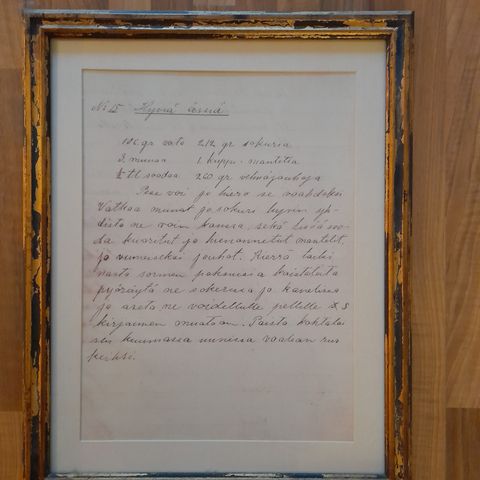 No 15 Hyviä ässiä.
106 gr voita 212 gr sokuria
2 munaa 1 kuppu mantelia
½ tl soodaa 260 gr vehnäjauhoja
Pese voi ja hiero se vaahdoksi
Vatkaa munat ja sokuri hyvin yh-
distä ne voin kanssa, sekä lisää soo-
da kuoritut ja hienonnetut mantelit,
ja viimeseksi jauhot. Kierrä tai-
nasta sormen paksuisia
pyöräytä ne sokerissa ja kanelissa
ja aseta ne voidellulle pellille S
kirjaimen muotoon. Paista kohtalai
sen kuumassa uunissa vaalean rus
keiksi.